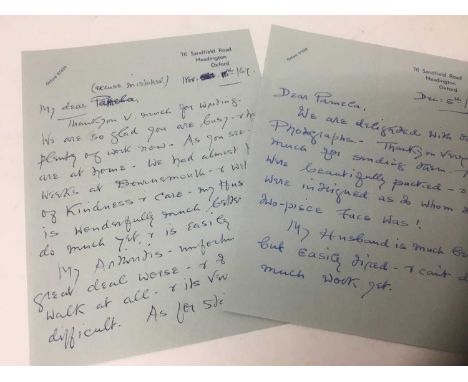 76 Sandfield Road
Headington
Oxford
(excuse mistakes!) Nov: 1967.
My dear Pamela,
Thank you v. much for writing.
We are so glad you are busy - &
plenty of work now. As you see -
are at home. We had almost
weeks at Bournemouth &
of Kindness & care - my Hus
is wonderfully much better
do much yet, & is easily
My Arthritis -
great deal worse - &
walk at all - & its v.
difficult. As for
76 Sandfield Road
Headington
Oxford
Dec: 1967
Dear Pamela,
We are delighted with
Photographs - Thank you very
much for sending them.
were beautifully packed -
were intrigued as to whom
two-piece face was!
My Husband is much be
but easily tired - & can't d
much work yet.